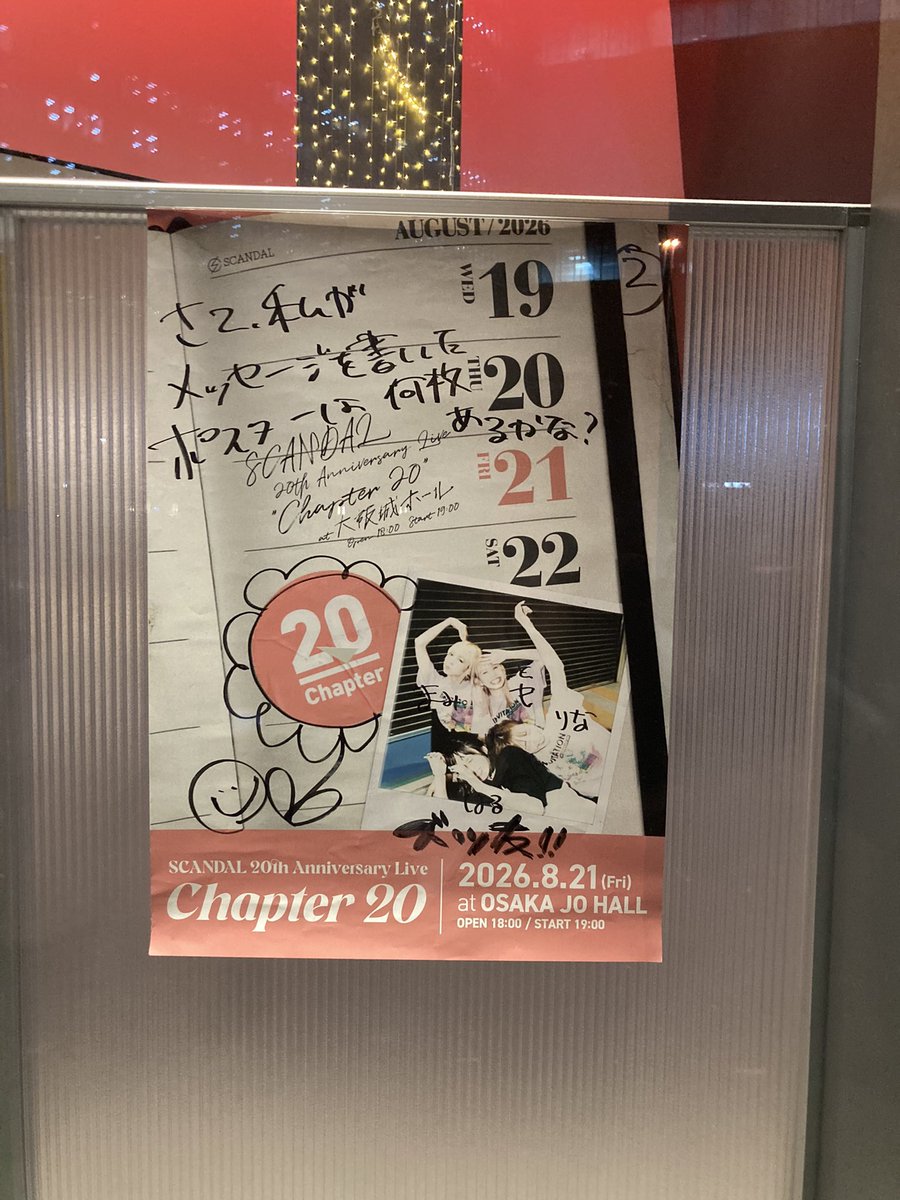 AUGUST / 2026
SCANDAL
2
WED 19
さて、私が
メッセージを書いした
THU 20
ポスターは 何枚
あるかな?
SCANDAL
20th Anniversary Live
"Chapter 20"
at 大阪城ホール
Open 18:00 Start 19:00
FRI 21
SAT 22
20
Chapter
まみ
とも
りな
はる
ズッ友!!
SCANDAL 20th Anniversary Live
Chapter 20
2026.8.21(Fri)
at OSAKA JO HALL
OPEN 18:00 / START 19:00